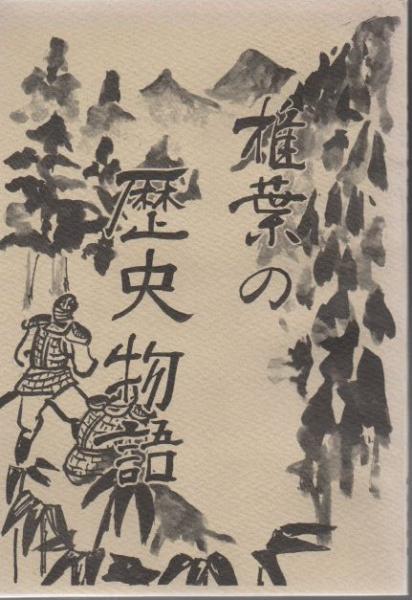 椎葉の
歴史物語